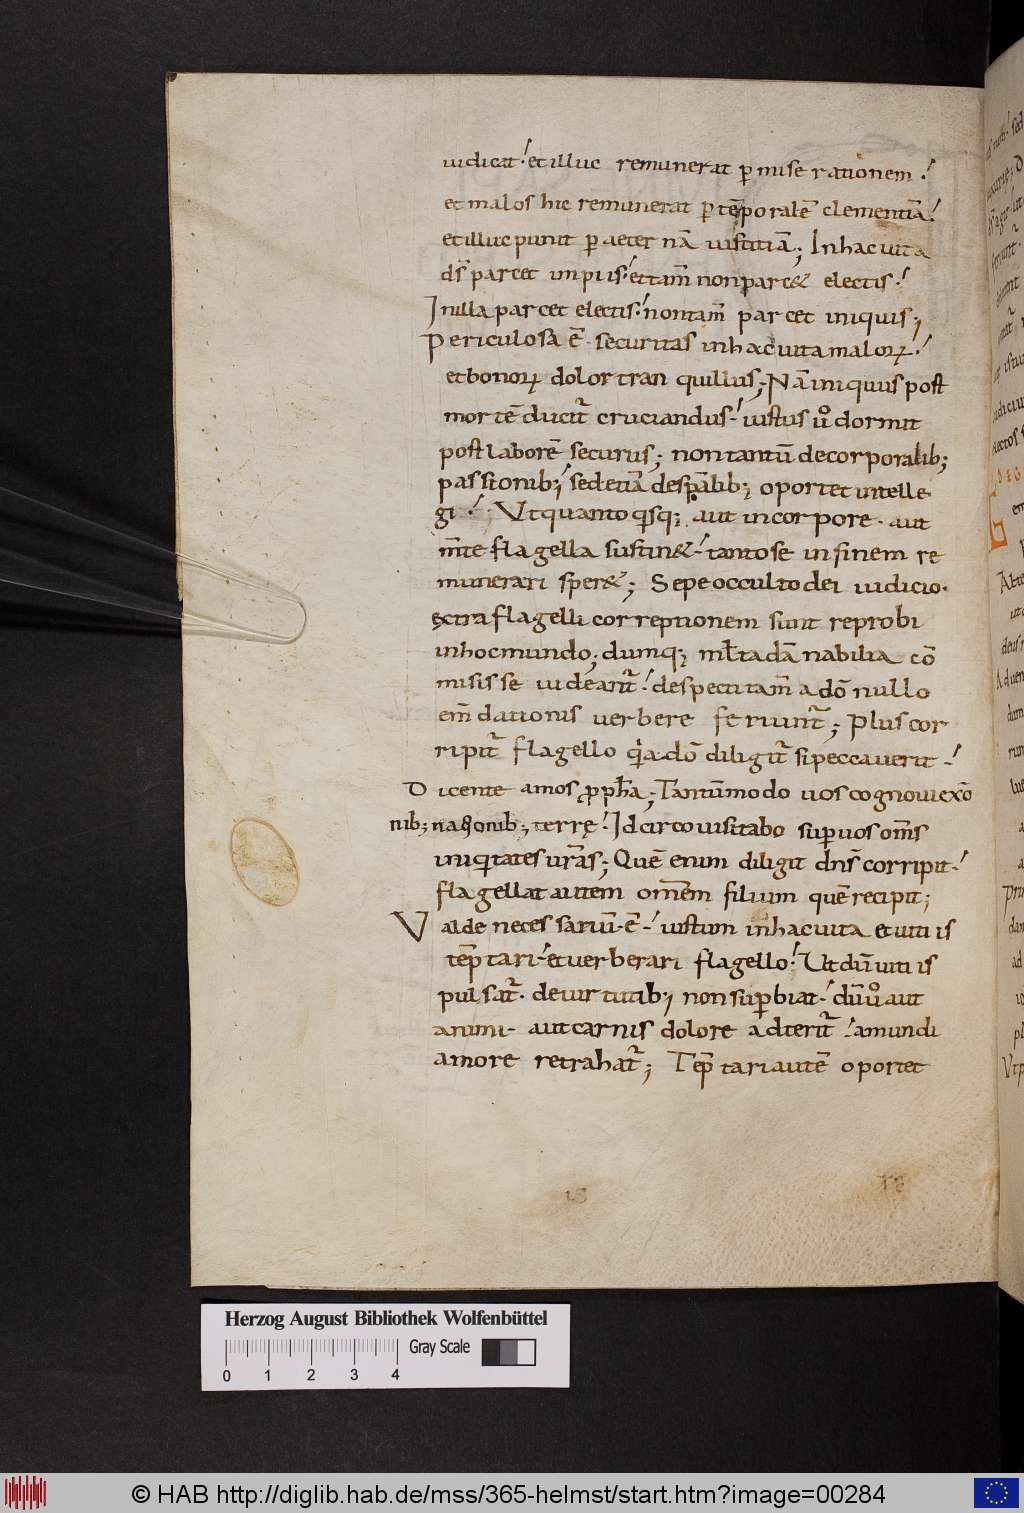 iudicat. et illuc remunerat p̲ miserationem.
et malos hic remunerat p̲ tēporalē clementiā.
et illuc punit p̲ aeternā iustitiā; In hac uita
dš parcet impiis. et tam̄ non parc& electis.
In illa parcet electis. non tam̄ parcet iniquis;
Periculosa ē securitas in hac uita maloꝝ.
et bonoꝝ dolor tranquillus; Nā iniquus post
mortē ducit̄ cruciandus. iustus ůo dormit
post laborē securus; non tantū de corporalib;
passionib; sed etiā de spāalib; oportet intelle
gi. Ut quanto qisq; aut in corpore. aut
m̄te flagella sustin&. tanto se in finem re
munerari sper&; Sepe occulto dei iudicio.
extra flagelli correptionem sunt reprobi
in hoc mundo; dumq; mł̄ta dānabilia cō
misisse uideant̄. despecti tam̄ a dō nullo
em̄dationis uerbere feriunt̄; Plus cor
ripit̄ flagello qia dō diligit̄ si peccauerit.
Dicente amos pph̄a; Tantūmodo uos cognoui ex ō
nib; nationib; terrę. Idcirco uisitabo sup̲ uos om̄s
iniqitates ur̄as; Quē enim diligit dn̄s corripit.
flagellat autem om̄em filium quē recipit;
Valde necessariū ē. iustum in hac uita et uitiis
tēptari. et uerberari flagello. Ut dū uitiis
pulsat̄. de uirtutib; non sup̲biat. dū ůo aut
animi. aut carnis dolore adterit̄. a mundi
amore retrahat̄; Tēptari autē oportet
Herzog August Bibliothek Wolfenbüttel
Gray Scale
0 1 2 3 4
© HAB http://diglib.hab.de/mss/365-helmst/start.htm?image=00284